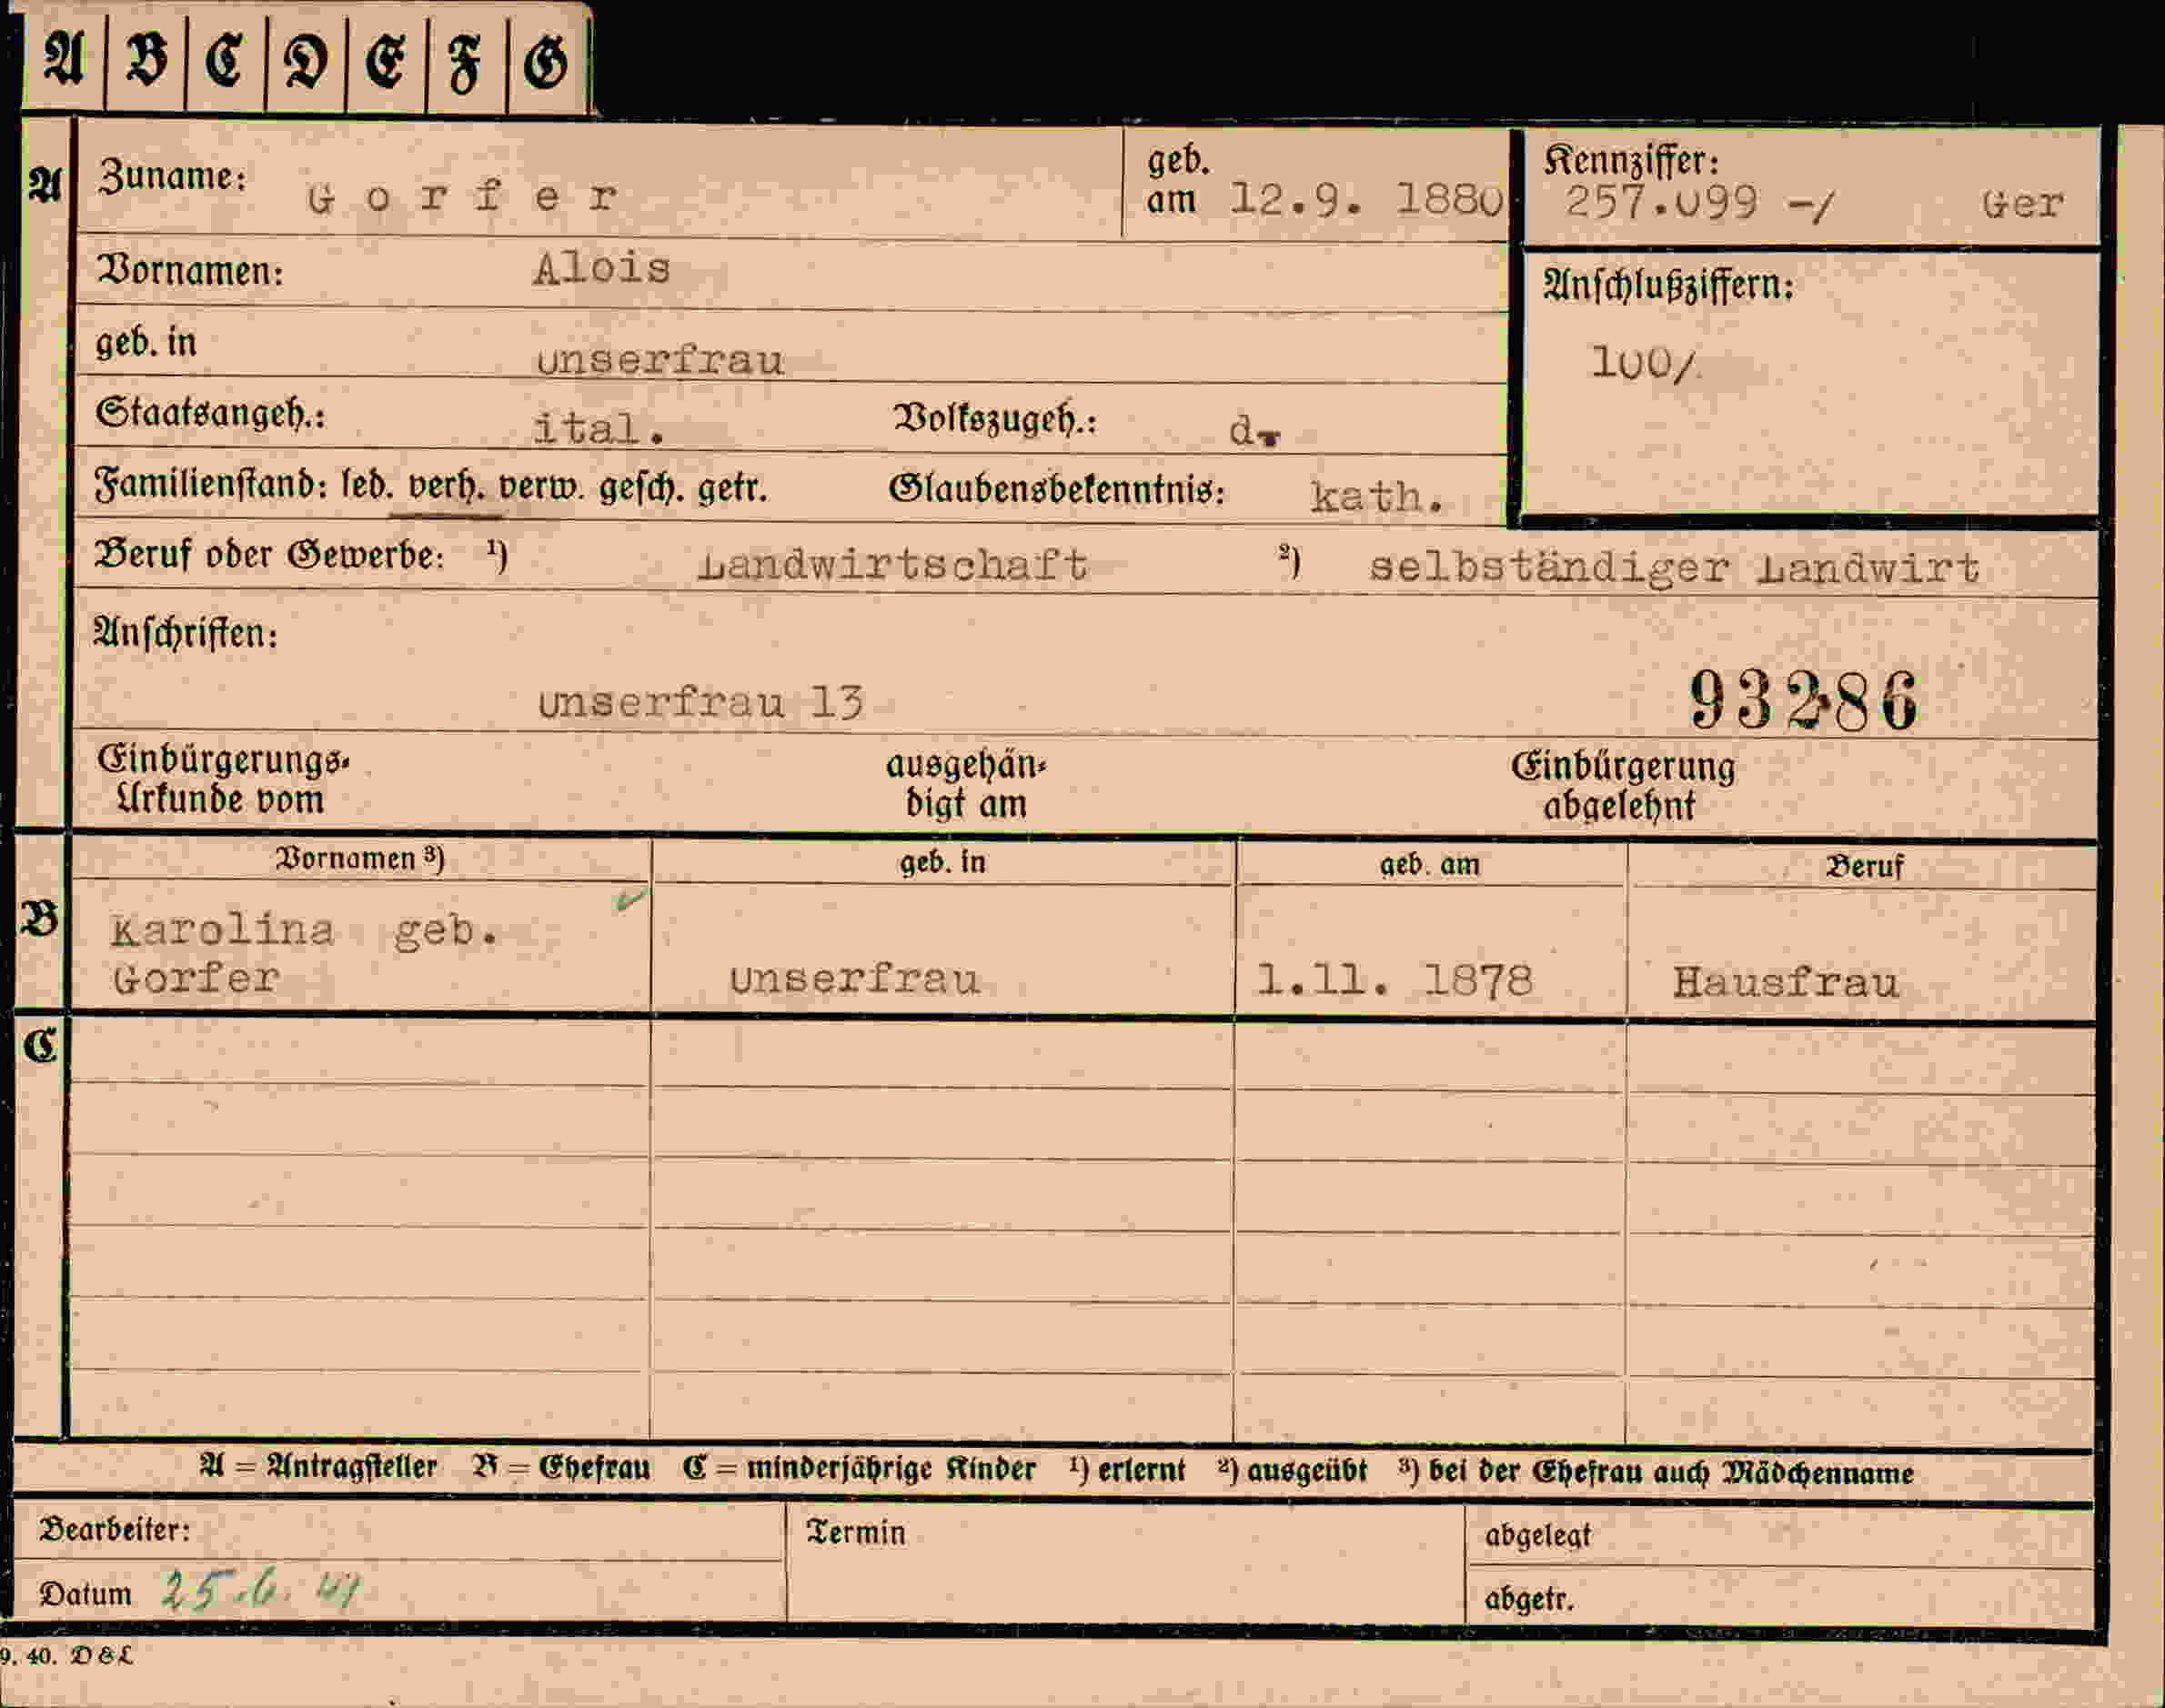 A B C D E F G
A Zuname: Gorfer geb. am 12.9. 1880 Kennziffer: 257.099 -/ Ger
Vornamen: Alois
Anschlußziffern:
geb. in Unserfrau 100/
Staatsangeh.: ital. Volkszugeh.: d.
Familienstand: led. verh. verw. gesch. getr. Glaubensbekenntnis: kath.
Beruf oder Gewerbe: ¹) Landwirtschaft ²) selbständiger Landwirt
Anschriften:
Unserfrau 13 93286
Einbürgerungs- ausgehän- Einbürgerung
Urkunde vom digt am abgelehnt
Vornamen ³) geb. in geb. am Beruf
B Karolina geb.
Gorfer Unserfrau 1.11. 1878 Hausfrau
C
A = Antragsteller B = Ehefrau C = minderjährige Kinder ¹) erlernt ²) ausgeübt ³) bei der Ehefrau auch Mädchenname
Bearbeiter: Termin abgelegt
Datum 25.6. 41 abgetr.
9. 40. D & L